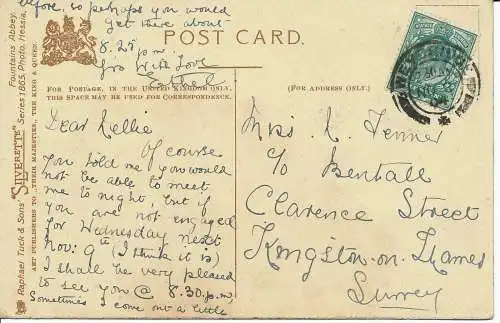 before, so perhaps you would
get there about
8.25 p.m
Yrs With Love
Ethel
POST CARD.
FOR POSTAGE, IN THE UNITED KINGDOM ONLY,
THIS SPACE MAY BE USED FOR CORRESPONDENCE.
(FOR ADDRESS ONLY.)
Dear Nellie
Of course
you told me you would
not be able to meet
me to night, but if
you are not engaged
for Wednesday next
Nov: 9th (I think it is)
I shall be very pleased
to see you @ 8.30 p.m
Sometimes I come out a little
Miss N. Jenner
c/o Bentall
Clarence Street
Kingston-on-Thames
Surrey
Raphael Tuck & Sons' "SILVERETTE"
Fountains Abbey.
Series 1865. Photo. Hessia.
ART PUBLISHERS TO THEIR MAJESTIES, THE KING & QUEEN.